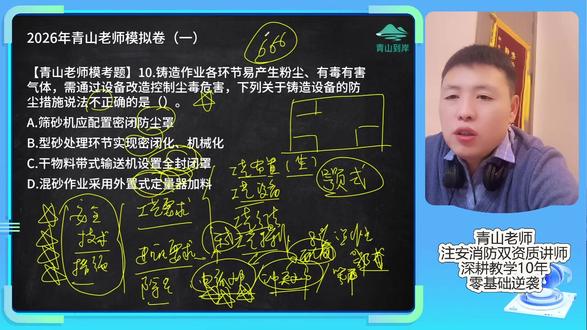 2026年青山老师模拟卷（一）
666
青山到岸
【青山老师模考题】10.铸造作业各环节易产生粉尘、有毒有害
气体，需通过设备改造控制尘毒危害，下列关于铸造设备的防
尘措施说法不正确的是（）。
A.筛砂机应配置密闭防尘罩
B.型砂处理环节实现密闭化、机械化
C.干物料带式输送机设置全封闭罩
D.混砂作业采用外置式定量器加料
工艺布置
工艺设备
颚式
安全
技术
措施
工艺要求
除尘
青山老师
注安消防双资质讲师
深耕教学10年
零基础逆袭